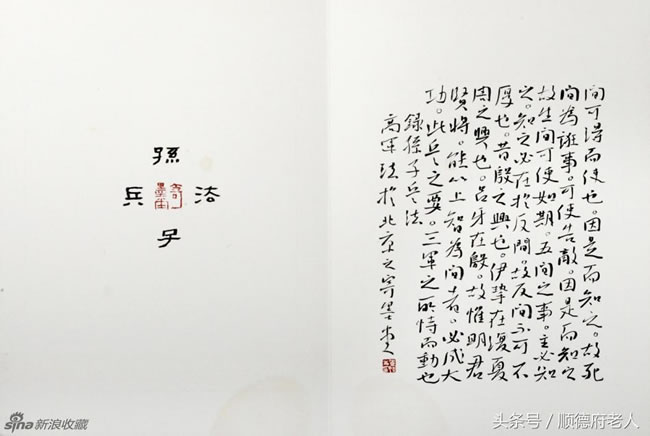 間可得而使也。因是而知之。故死
間為誑事。可使告敵。因是而知之
故生間可使如期。五間之事。主必知
之。知之必在於反間。故反間不可不
厚也。昔殷之興也。伊摯在夏
周之興也。呂牙在殷。故惟明君
賢將。能以上智為間者。必成大
功。此兵之要。三軍之所恃而動也
錄孫子兵法
高軍法於北京之寄墨堂
孫
兵 法
子
sina新浪收藏
头条号 / 顺德府老人